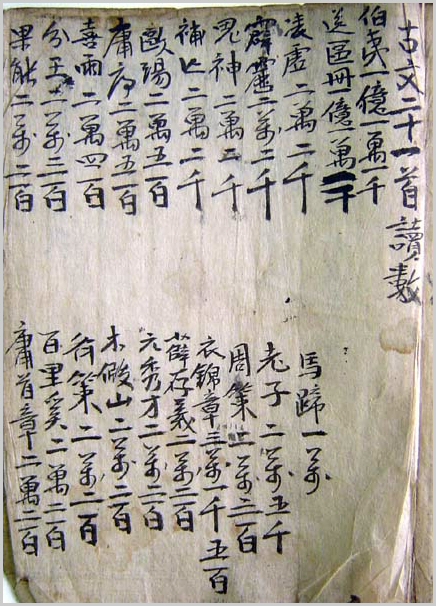 古文二十一首讀數
伯夷一億一萬一千
送區冊一億一萬千
凌虛二萬二千
霹靂二萬二千
鬼神二萬二千
補亡二萬二千
歐陽二萬五百
庸序二萬五百
喜雨二萬四百
分王二萬三百
果能二萬二百
馬蹄一萬
老子二萬五千
周策萬二百
衣錦章三萬一千五百
薛存義二萬二百
元秀才二萬二百
木假山二萬二百
策二萬二百
百里奚二萬二百
庸首章二萬二百